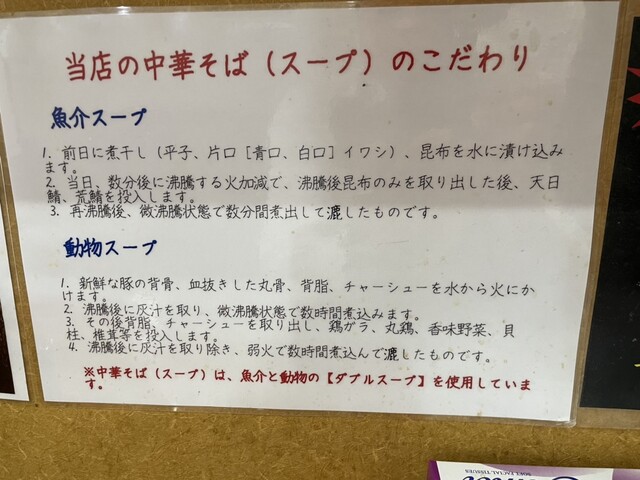 当店の中華そば（スープ）のこだわり
魚介スープ
1. 前日に煮干し（平子、片口［青口、白口］イワシ）、昆布を水に漬け込み
ます。
2. 当日、数分後に沸騰する火加減で、沸騰後昆布のみを取り出した後、天日
鯖、荒鯖を投入します。
3. 再沸騰後、微沸騰状態で数分間煮出して漉したものです。
動物スープ
1. 新鮮な豚の背骨、血抜きした丸骨、背脂、チャーシューを水から火にか
けます。
2. 沸騰後に灰汁を取り、微沸騰状態で数時間煮込みます。
3. その後背脂、チャーシューを取り出し、鶏ガラ、丸鶏、香味野菜、貝
柱、椎茸等を投入します。
4. 沸騰後に灰汁を取り除き、弱火で数時間煮込んで漉したものです。
※中華そば（スープ）は、魚介と動物の【ダブルスープ】を使用していま
す。
SOFT FACIAL TISSUES